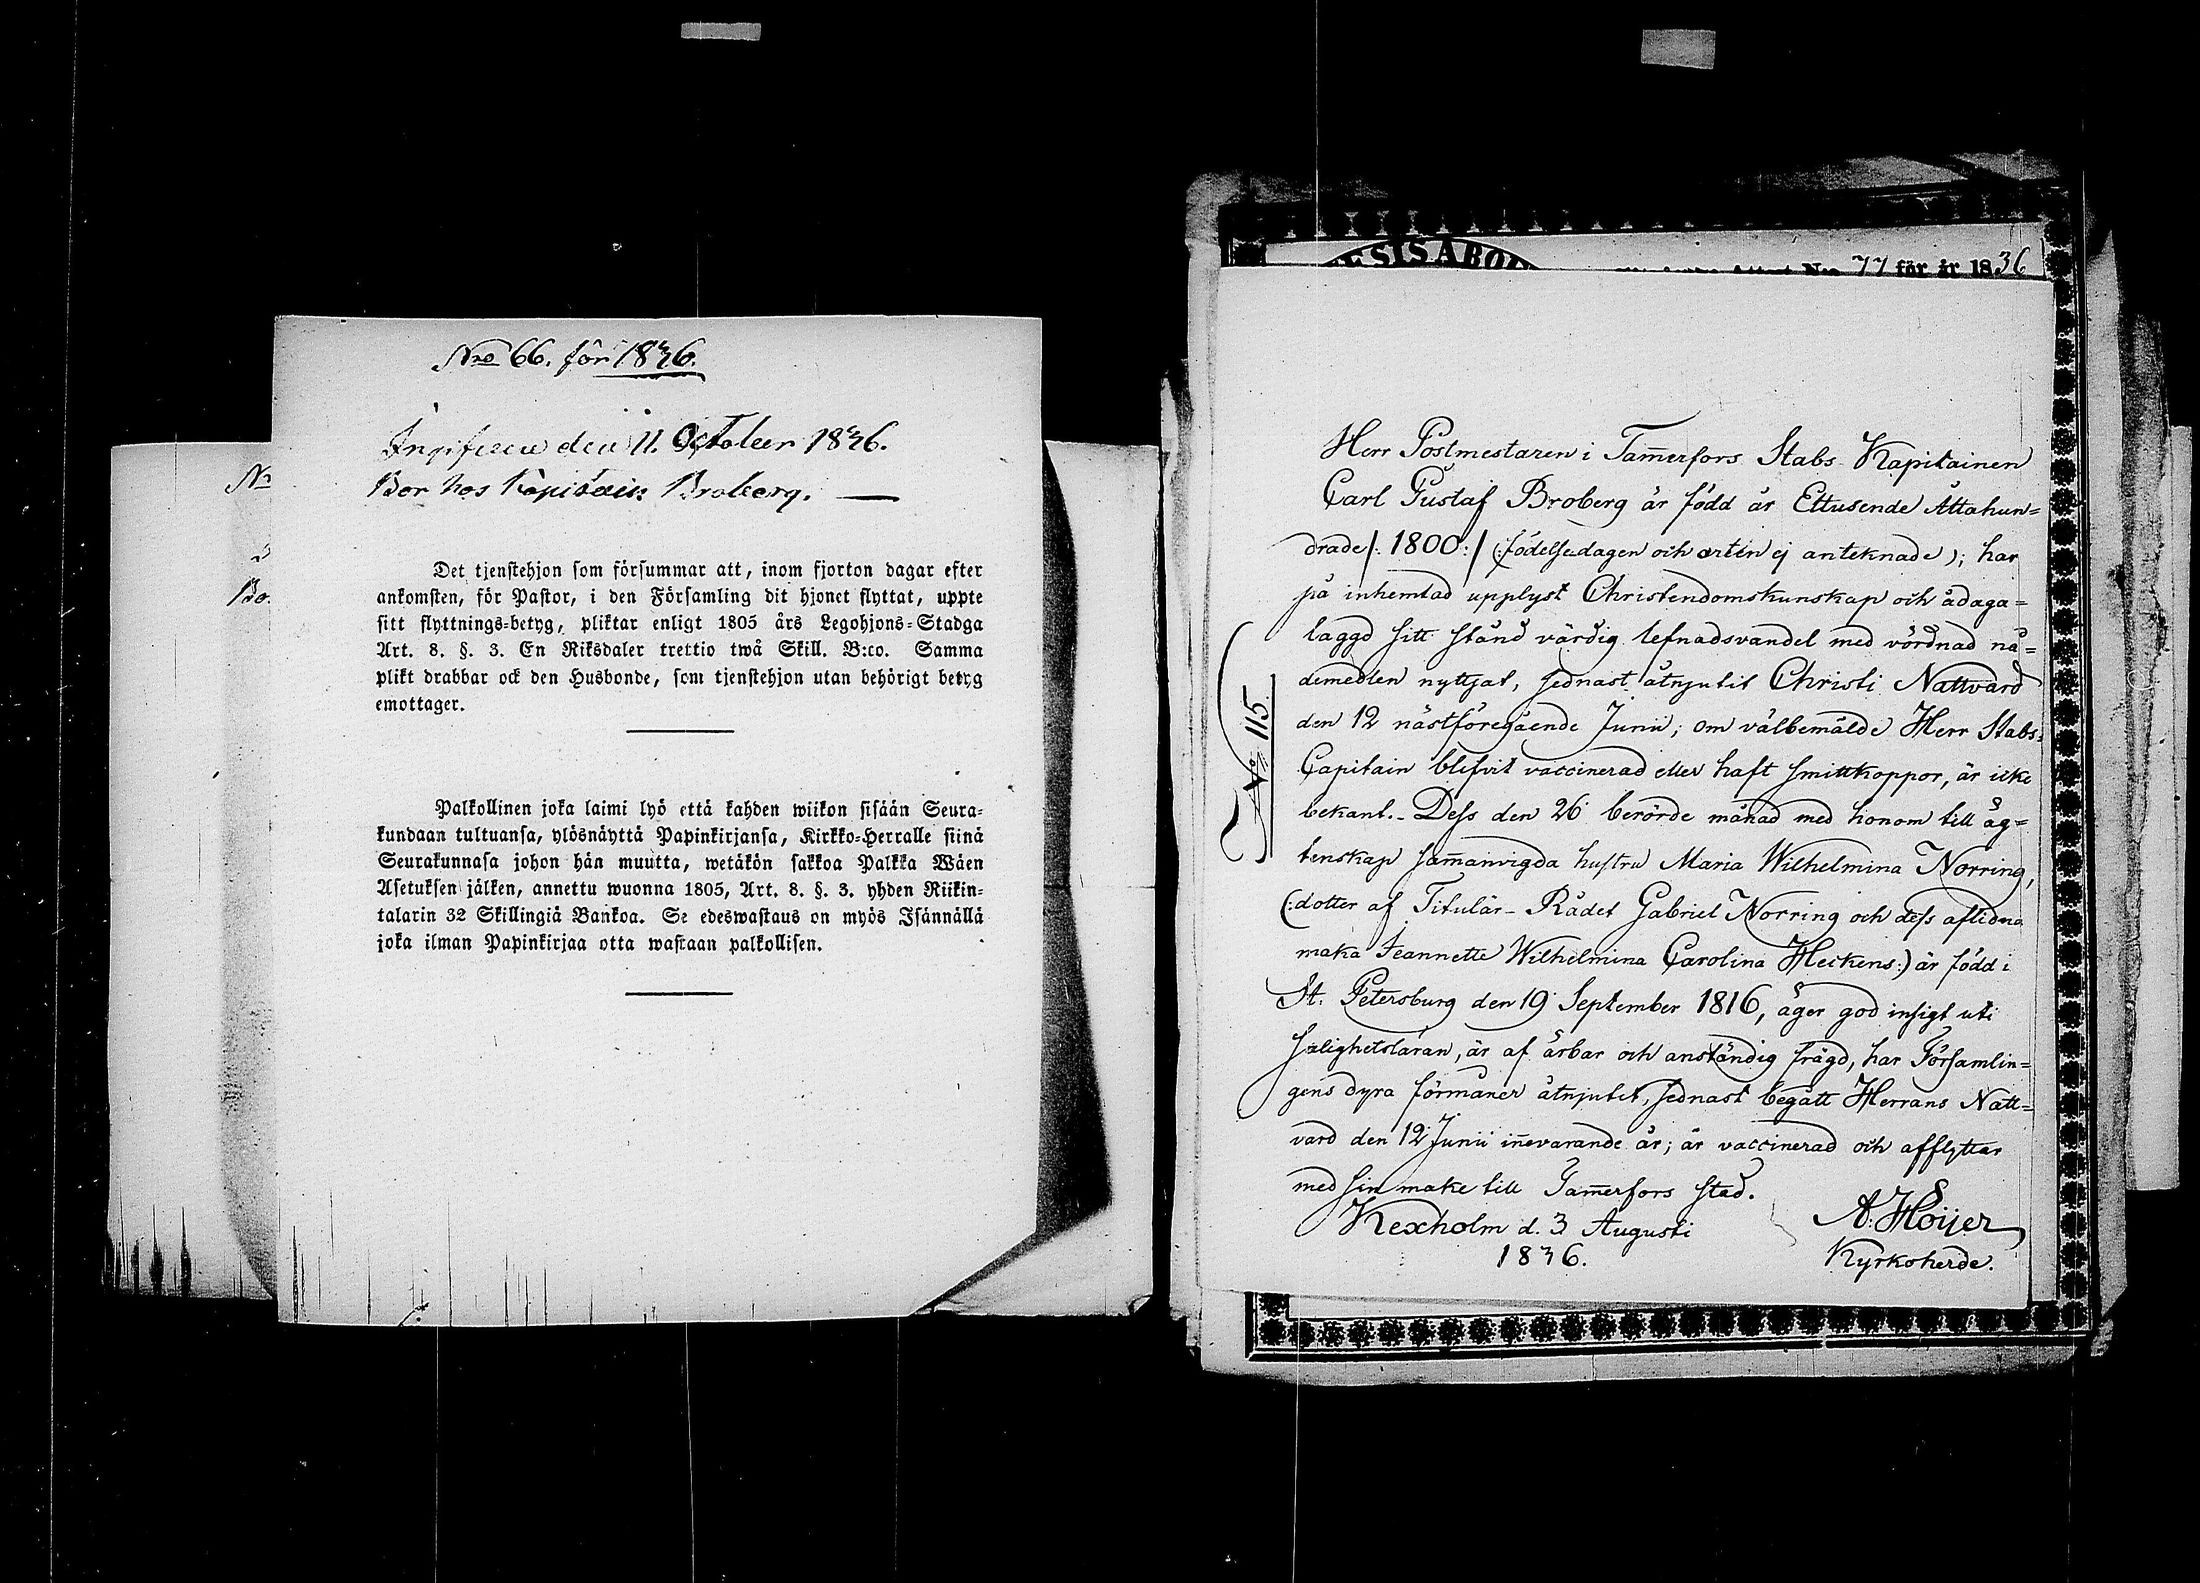 Nro 66. för 1836.
Ingifven den 11. October 1836.
Bor hos Kapitain Broberg.
Det tjenstehjon som försummar att, inom fjorton dagar efter
ankomsten, för Pastor, i den Församling dit hjonet flyttat, uppte
sitt flyttnings-betyg, pliktar enligt 1805 års Legohjons-Stadga
Art. 8. §. 3. En Riksdaler trettio twå Skill. B:co. Samma
plikt drabbar ock den Husbonde, som tjenstehjon utan behörigt betyg
emottager.
Palkollinen joka laimi lyö että kahden wiikon sisään Seura-
kundaan tultuansa, ylösnäyttä Papinkirjansa, Kirkko-Herralle siinä
Seurakunnasa johon hän muutta, wetäkön sakkoa Palkka Wäen
Asetuksen jälken, annettu wuonna 1805, Art. 8. §. 3. yhden Riikin-
talarin 32 Skillingiä Bankoa. Se edeswastaus on myös Isännällä
joka ilman Papinkirjaa otta wastaan palkollisen.
Nr
Bo.
77 för år 1836
Herr Postmestaren i Tam̄erfors Stabs Kapitainen
Carl Gustaf Broberg är född år Ettusende Åttahun=
drade /: 1800 :/ (: födelsedagen och orten ej anteknade); har
på inhemtad upplyst Christendomskunskap och ådaga=
laggd sitt stånd värdig lefnadsvandel med vördnad nå=
demedlen nyttjat, sednast åtnjutit Christi Nattvard
den 12 nästföregående Junii; om välbemälde Herr Stabs=
Capitain blifvit vaccinerad eller haft smittkoppor, är icke
bekant. - Dess den 26 berörde månad med honom till äg=
tenskap sam̄anvigda hustru Maria Wilhelmina Norring,
(: dotter af Titulär-Rådet Gabriel Norring och dess aflidna
maka Jeannette Wilhelmina Carolina Heckens :) är född i
St. Petersburg den 19 September 1816, äger god insigt uti
salighetsläran, är af ärbar och anständig frägd, har Församlin=
gens dyra förmåner åtnjutit, sednast begått Herrans Natt=
vard den 12 Junii in̄evarande år; är vaccinerad och afflyttar
med sin make till Tam̄erfors stad.
Kexholm d. 3 Augusti
1836.
A: Höijer
Kyrkoherde.
No 115.